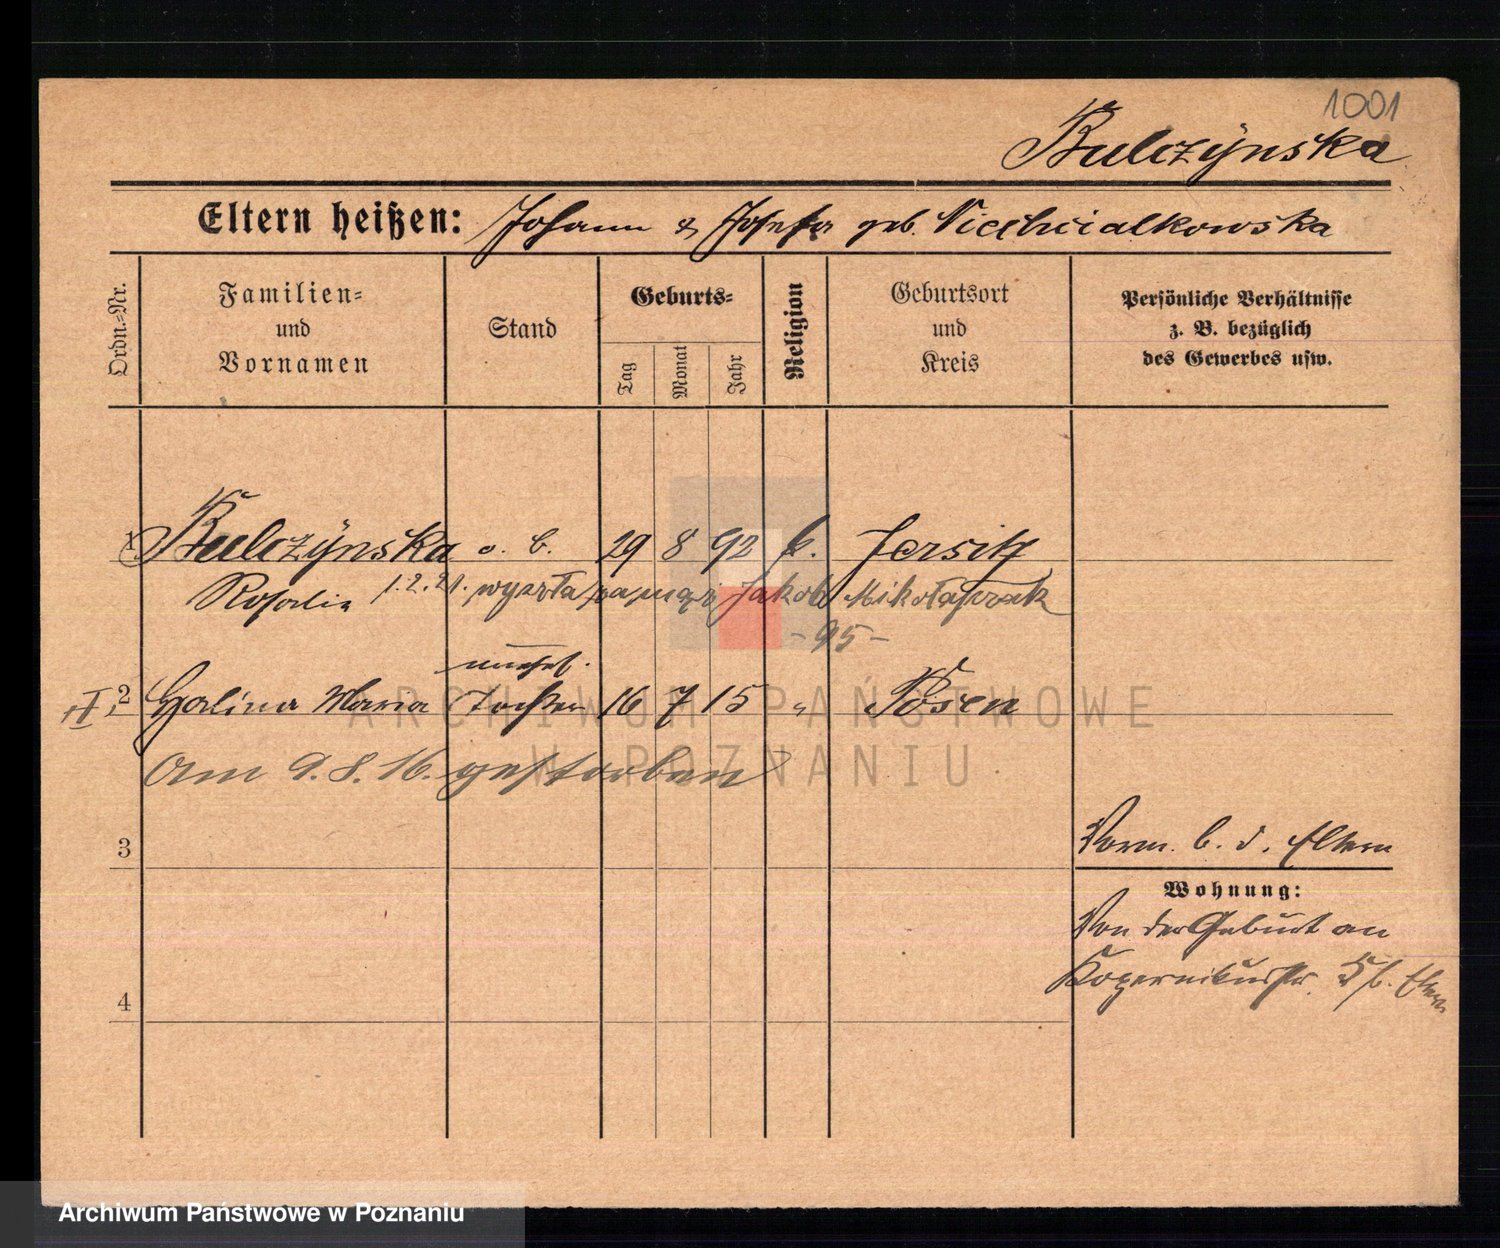 1001
Bulczynska
Eltern heißen: Johann & Josefa geb. Niedzwialkowska
Ordn.-Nr.
Familien-
und
Vornamen
Stand
Geburts-
Tag
Monat
Jahr
Religion
Geburtsort
und
Kreis
Persönliche Verhältnisse
z. B. bezüglich
des Gewerbes usw.
1 Bulczynska o. B. 29 8 92 k. Jersitz
Rosalia 1.2.21. wyszła za mąż Jakob Mikołajczak
-95-
unehel.
II. 2 Halina Maria Tochter 16 7 15 " Posen
Am 9.8.16. gestorben
3
Vorm. b. d. Eltern
Wohnung:
Von der Geburt an
Kopernikusstr. 5 b. Eltern
4
ARCHIWUM PAŃSTWOWE
W POZNANIU
Archiwum Państwowe w Poznaniu